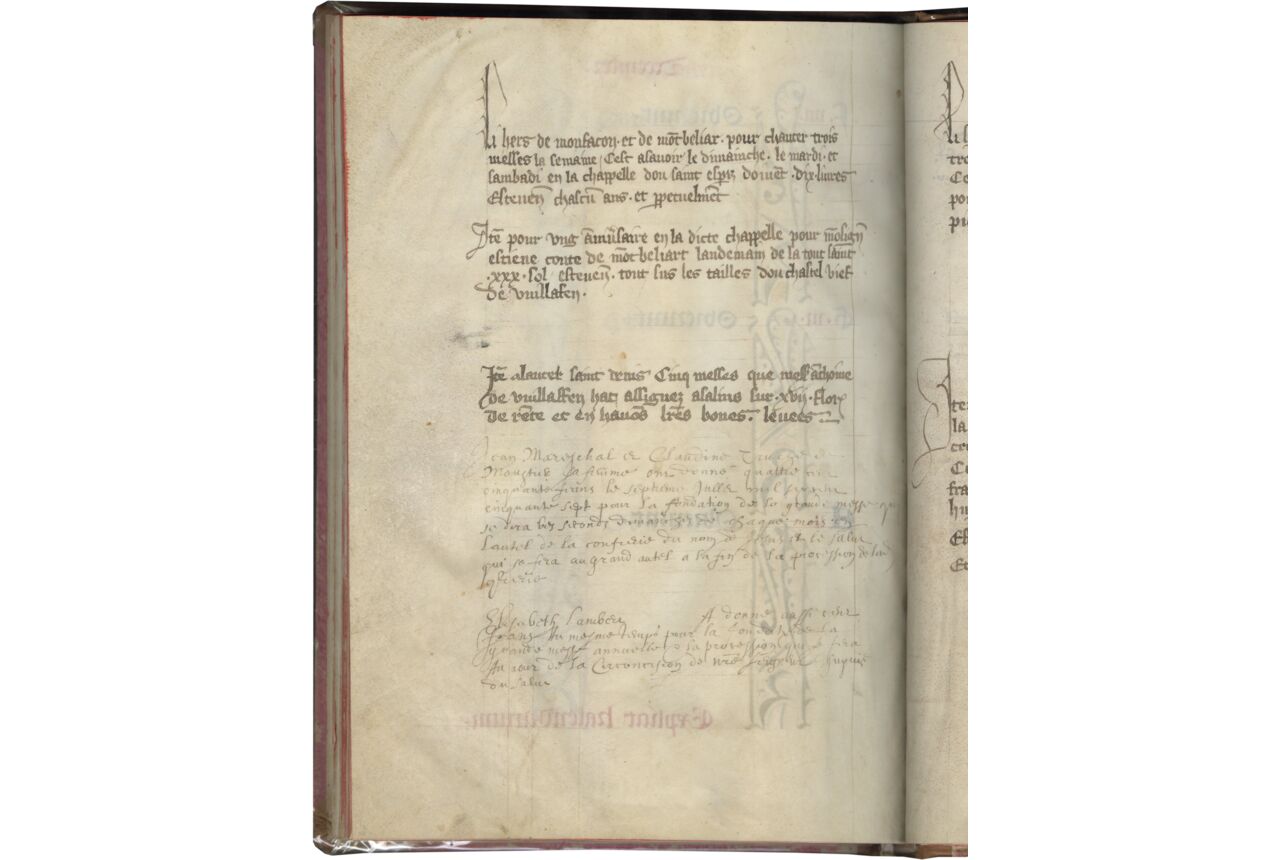 Li hers de monfacon · et de mōtbeliar · pour chanter trois
messes la semaine / Cest asavoir le dimainche · le mardi · et
sambadi en la chappelle dou saint esprit doivēt · dix · livres
Estevenᷠ chascū ans · et ꝑpetuelmēt
Itē pour ung ānivsaire en la dicte chappelle pour
estiene conte de mōtbeliart landemain de la tout saint
· xxx · sol estevenᷠ · tout sus les tailles dou chastel vief
de vuillafen ·
Itē a lautel saint denis Cinq messes que mess āthoine
de vuillaffen hat assignez a salins sur · xvij · flor
de rēte et en havōs lrēs bones · levees
Jean Mareschal et Claudine
sa femme ont donné quattre cent
cinquante frans le septieme Juillet mil six cent
cinquante sept pour la fondation de la grande messe qui
se dira les seconds dimanches de chaque mois a
lautel de la confrerie du nom de Jesus et le salut
qui se fera au grand autel a la fin de la procession de lad
Elisabeth Lambert A donné aussi cent
frans au mesme temps pour la fondation de la
grande messe annuelle & la procession qui se fera
Au jour de la Circoncision de nre Seigneur
du salut